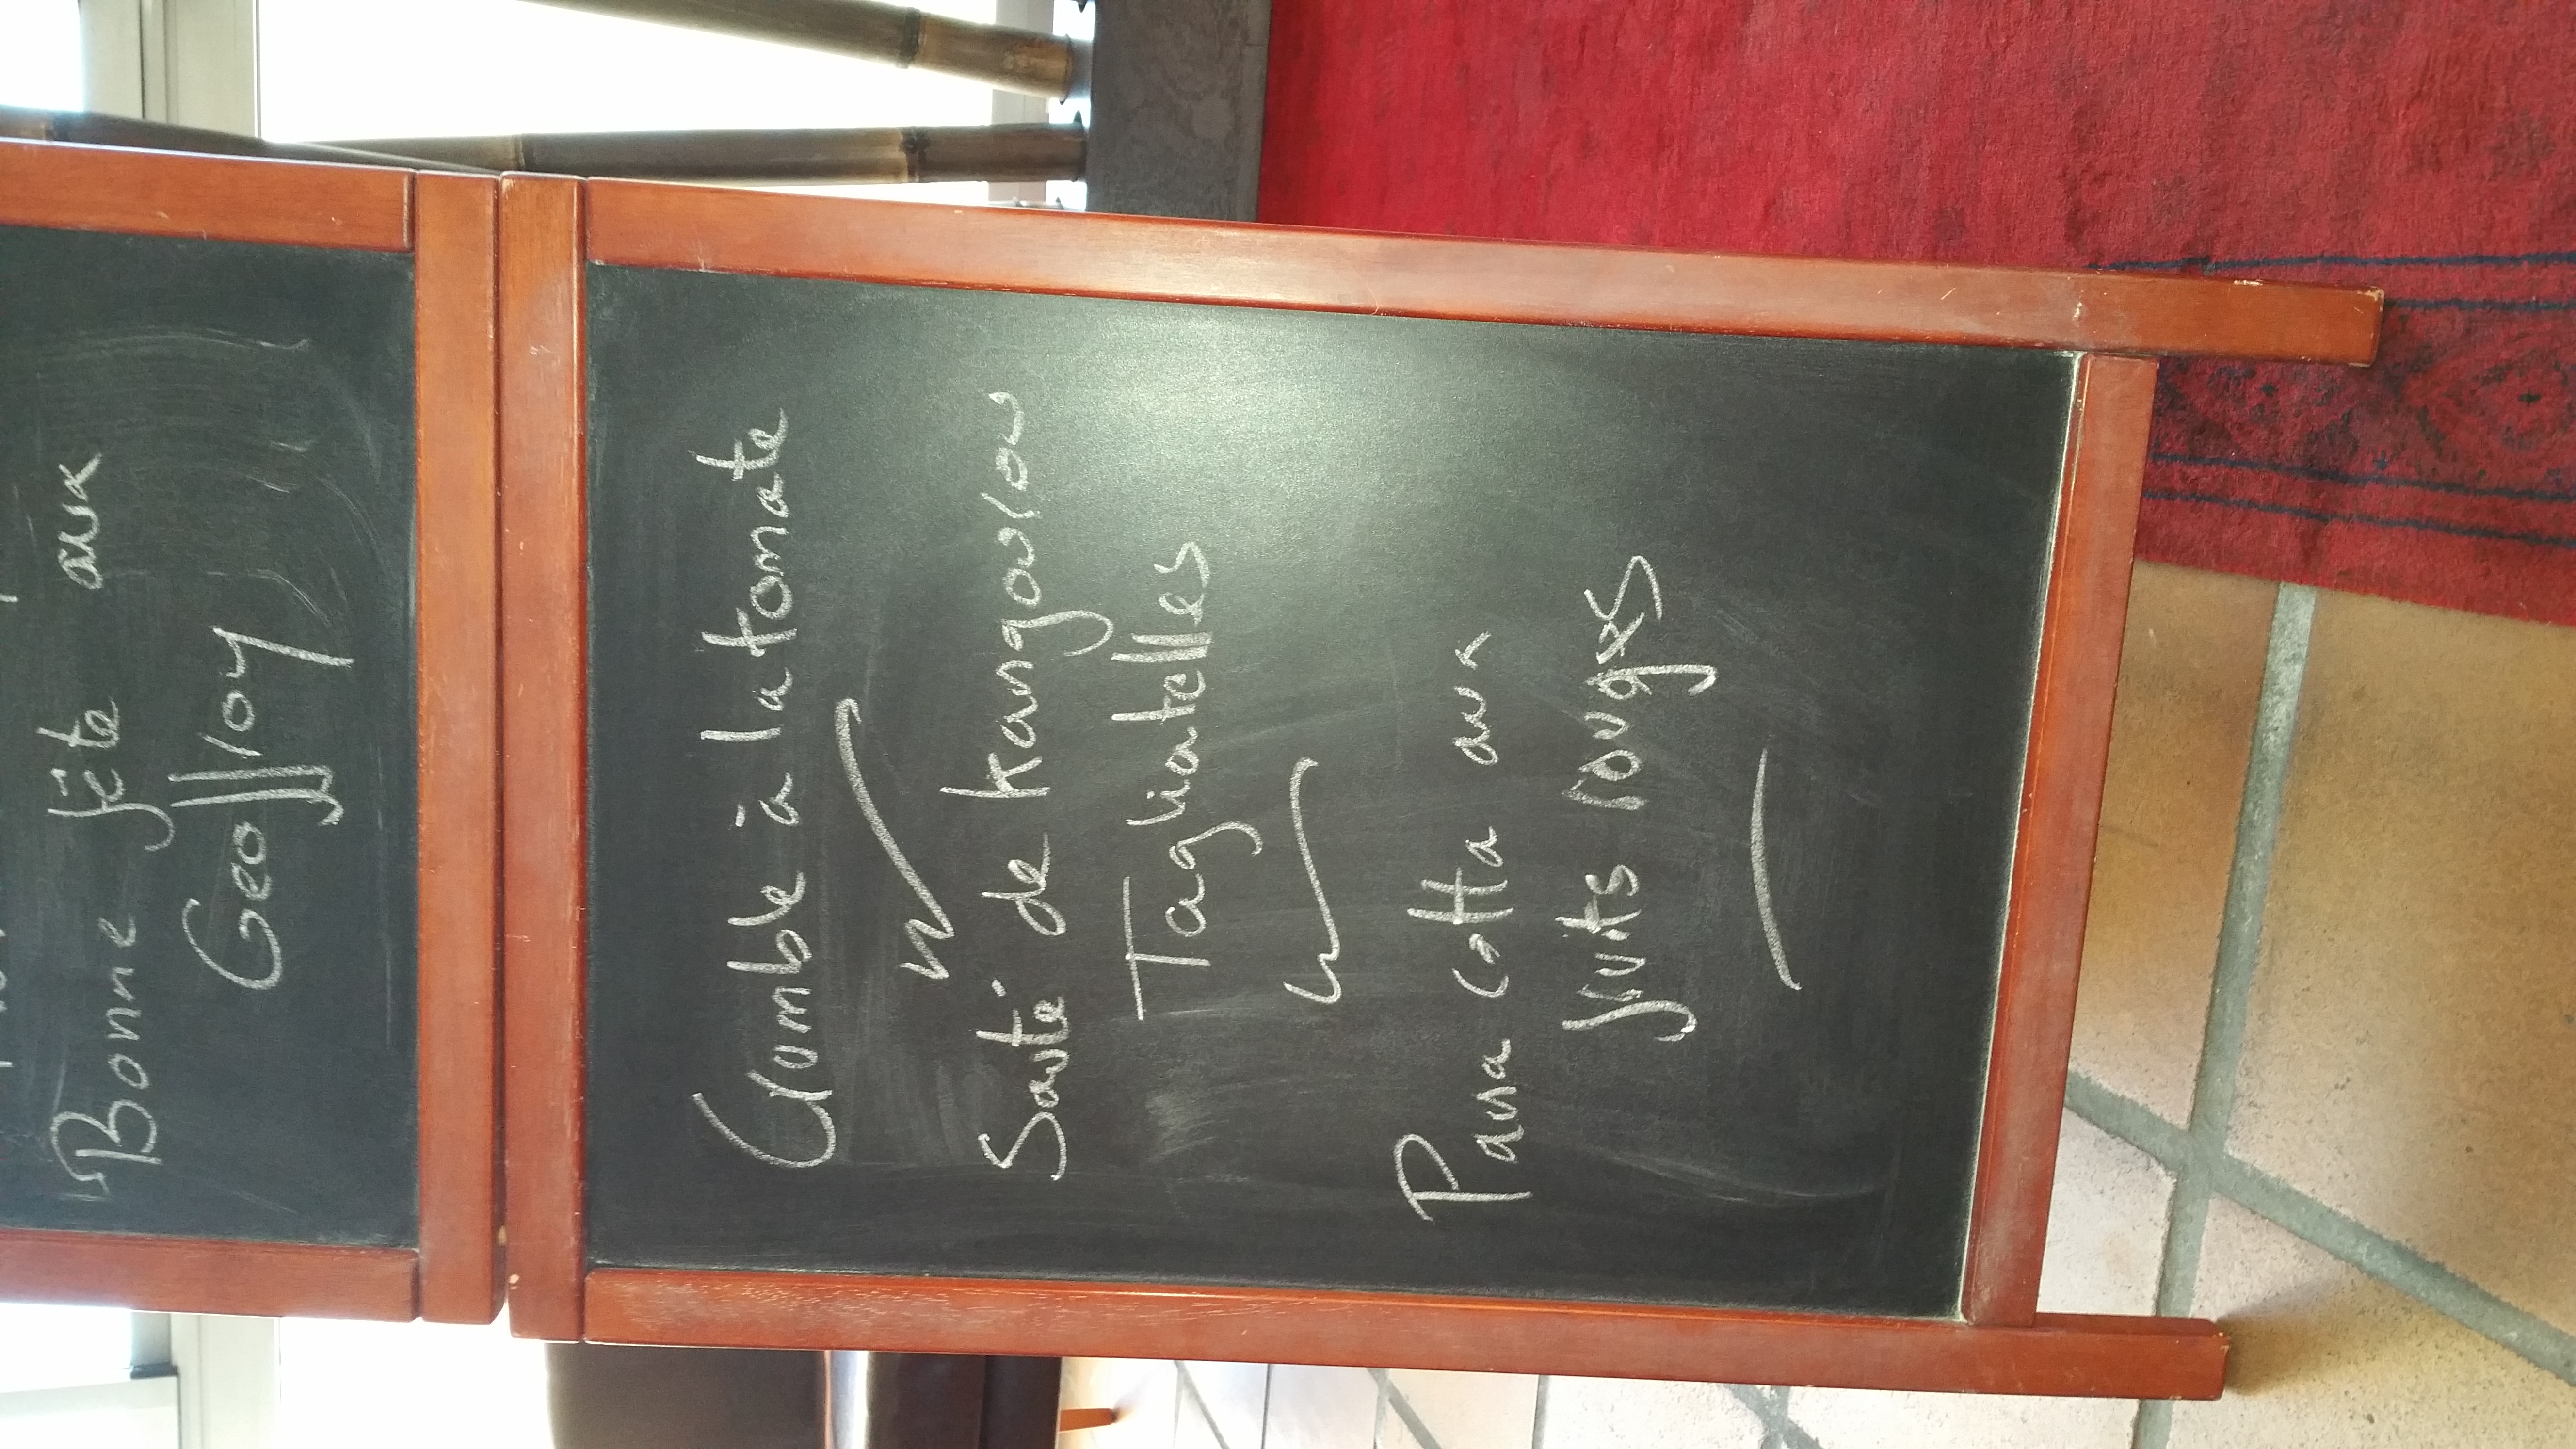 Bonne fête aux
Geoffroy
Crumble à la tomate
Sauté de kangourou
Tagliatelles
Pana cotta aux
fruits rouges